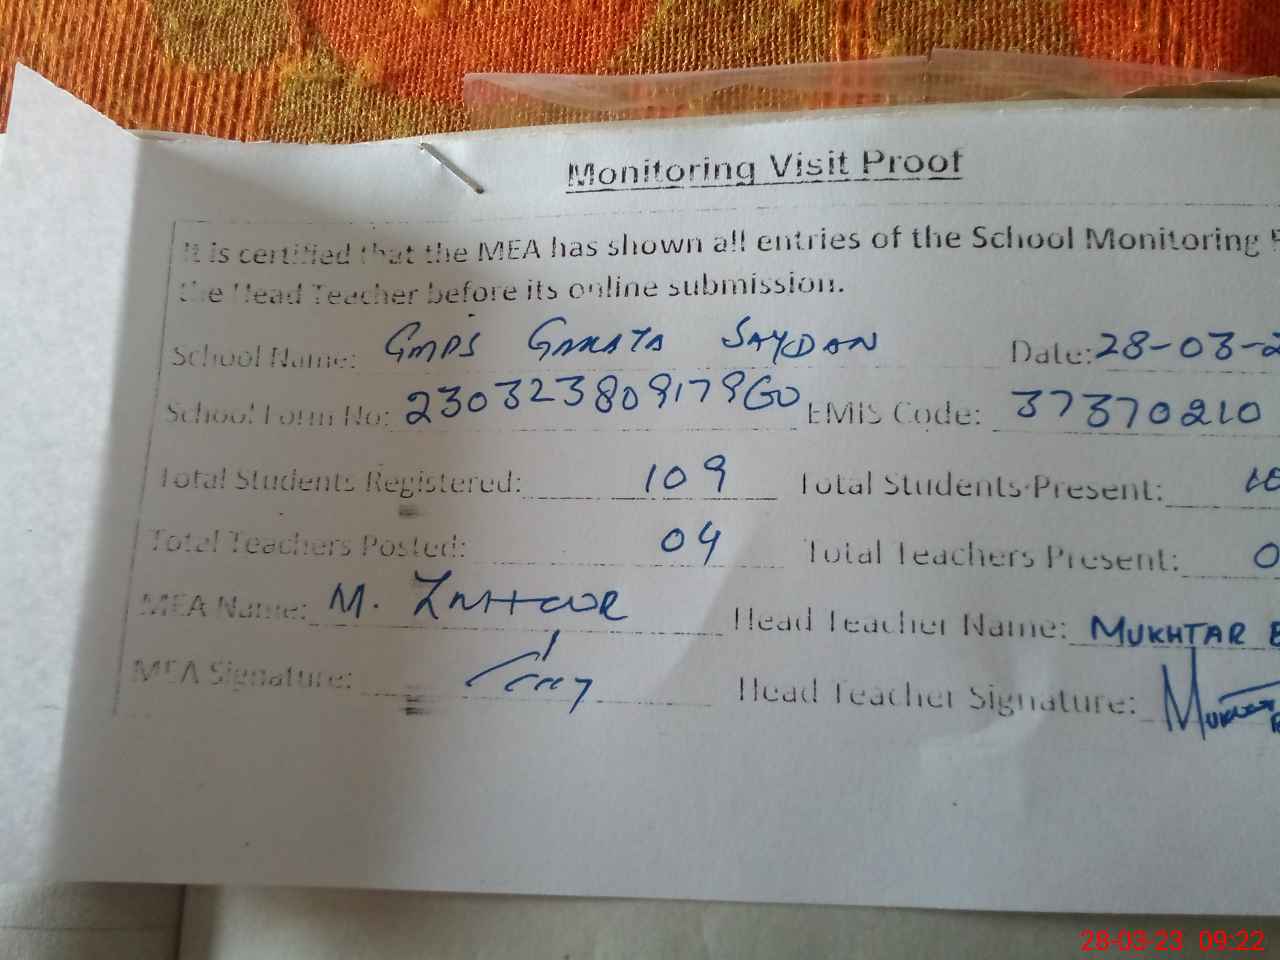 Monitoring Visit Proof
It is certified that the MEA has shown all entries of the School Monitoring
the Head Teacher before its online submission.
School Name: GMPS GAKATA SAYDAN Date: 28-03-2
School Form No: 230323809179GO EMIS Code: 37370210
Total Students Registered: 109 Total Students Present: 10
Total Teachers Posted: 04 Total Teachers Present: 0
MEA Name: M. Head Teacher Name: MUKHTAR
MEA Signature: Head Teacher Signature:
28-03-23 09:22